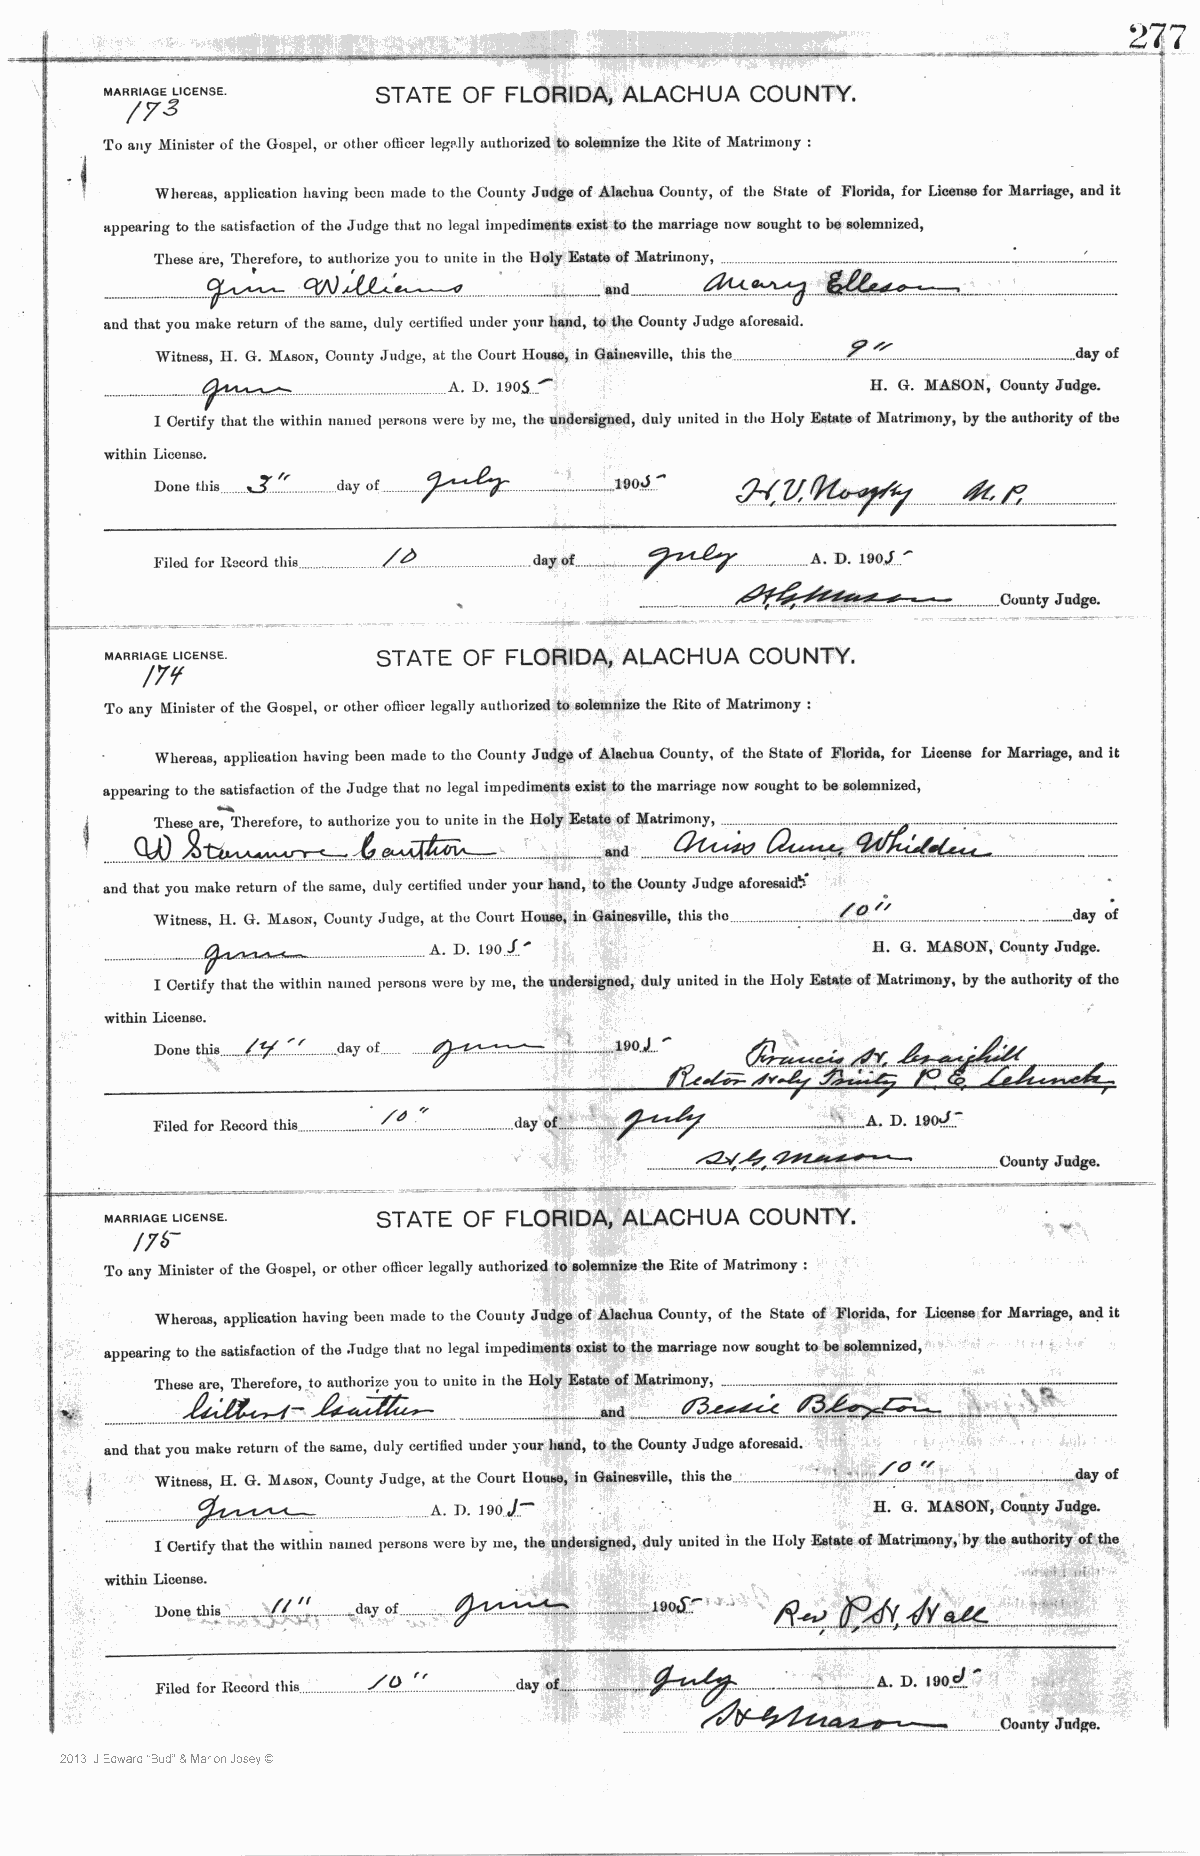 277
MARRIAGE LICENSE. STATE OF FLORIDA, ALACHUA COUNTY.
173
To any Minister of the Gospel, or other officer legally authorized to solemnize the Rite of Matrimony :
Whereas, application having been made to the County Judge of Alachua County, of the State of Florida, for License for Marriage, and it
appearing to the satisfaction of the Judge that no legal impediments exist to the marriage now sought to be solemnized,
These are, Therefore, to authorize you to unite in the Holy Estate of Matrimony,
Jim Williams and Mary Elleson
and that you make return of the same, duly certified under your hand, to the County Judge aforesaid.
Witness, H. G. MASON, County Judge, at the Court House, in Gainesville, this the 9" day of
June A. D. 1905 H. G. MASON, County Judge.
I Certify that the within named persons were by me, the undersigned, duly united in the Holy Estate of Matrimony, by the authority of the
within License.
Done this 3" day of July 1905 H. V. N. P.
Filed for Record this 10 day of July A. D. 1905
H. G. Mason County Judge.
MARRIAGE LICENSE. STATE OF FLORIDA, ALACHUA COUNTY.
174
To any Minister of the Gospel, or other officer legally authorized to solemnize the Rite of Matrimony :
Whereas, application having been made to the County Judge of Alachua County, of the State of Florida, for License for Marriage, and it
appearing to the satisfaction of the Judge that no legal impediments exist to the marriage now sought to be solemnized,
These are, Therefore, to authorize you to unite in the Holy Estate of Matrimony,
W Stanmore Cauthon and Miss Anne Whidden
and that you make return of the same, duly certified under your hand, to the County Judge aforesaid.
Witness, H. G. MASON, County Judge, at the Court House, in Gainesville, this the 10" day of
June A. D. 1905 H. G. MASON, County Judge.
I Certify that the within named persons were by me, the undersigned, duly united in the Holy Estate of Matrimony, by the authority of the
within License.
Done this 14" day of June 1905 Francis H. Craighill
Rector Holy Trinity P. E. Church,
Filed for Record this 10" day of July A. D. 1905
H. G. Mason County Judge.
MARRIAGE LICENSE. STATE OF FLORIDA, ALACHUA COUNTY.
175
To any Minister of the Gospel, or other officer legally authorized to solemnize the Rite of Matrimony :
Whereas, application having been made to the County Judge of Alachua County, of the State of Florida, for License for Marriage, and it
appearing to the satisfaction of the Judge that no legal impediments exist to the marriage now sought to be solemnized,
These are, Therefore, to authorize you to unite in the Holy Estate of Matrimony,
Gilbert Gaither and Bessie Bloxton
and that you make return of the same, duly certified under your hand, to the County Judge aforesaid.
Witness, H. G. MASON, County Judge, at the Court House, in Gainesville, this the 10" day of
June A. D. 1905 H. G. MASON, County Judge.
I Certify that the within named persons were by me, the undersigned, duly united in the Holy Estate of Matrimony, by the authority of the
within License.
Done this 11" day of June 1905 Rev, P. H. Hall
Filed for Record this 10" day of July A. D. 1905
H G Mason County Judge.
2013 J Edward "Bud" & Marion Josey ©